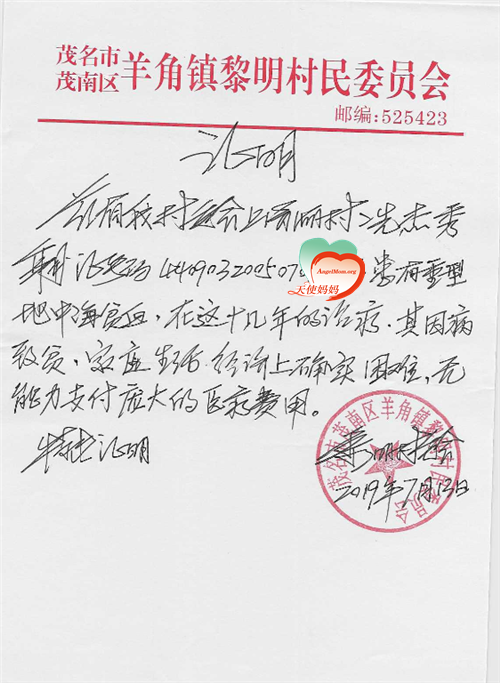 茂名市
茂南区 羊角镇黎明村民委员会
邮编:525423
证明
兹有我村委会上 明村 冼杰秀
身份证号码 440903200507 患有重型
地中海贫血,在这十几年的治疗,其因病
致贫,家庭生活经济上确实困难,无
能力支付庞大的医疗费用。
特此证明
黎明村委会
2019年7月13日
AngelMom.org
天使妈妈
茂名市茂南区羊角镇黎明村民委员会